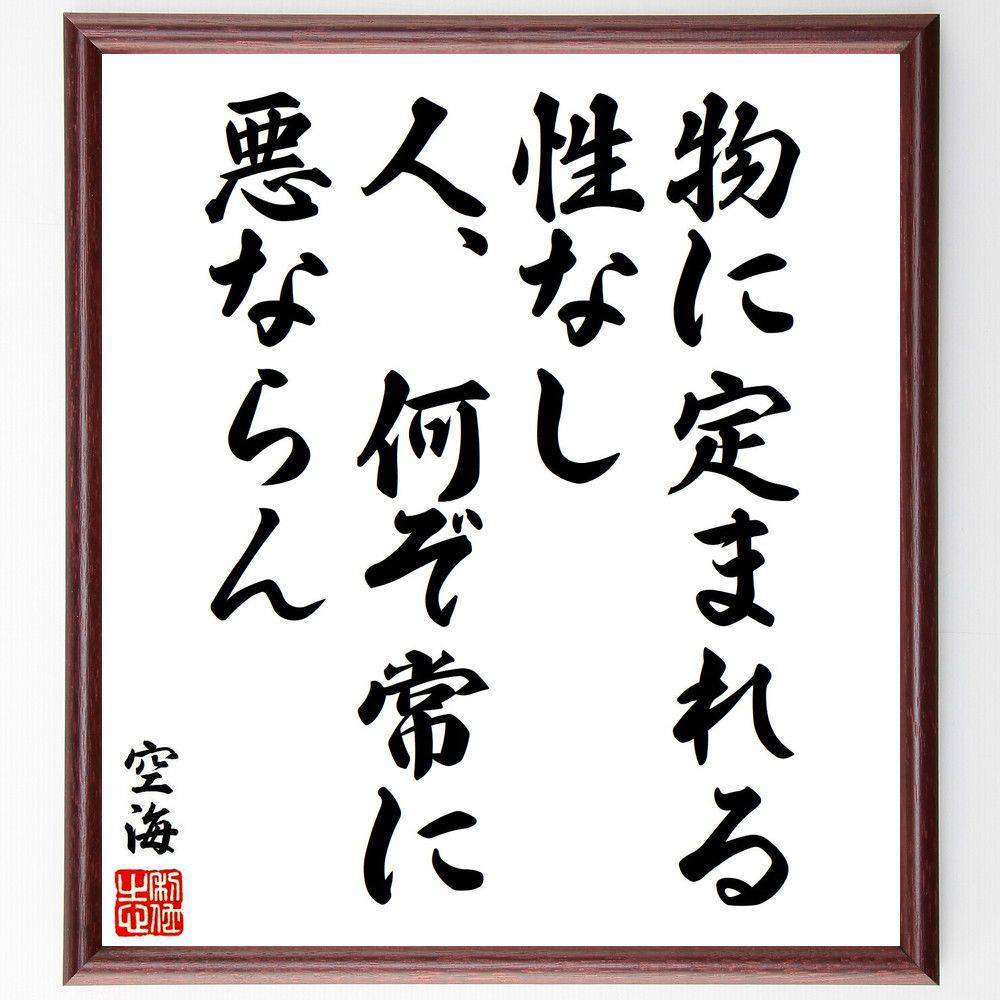 物に定まれる
性なし
人、何ぞ常に
悪ならん
空海